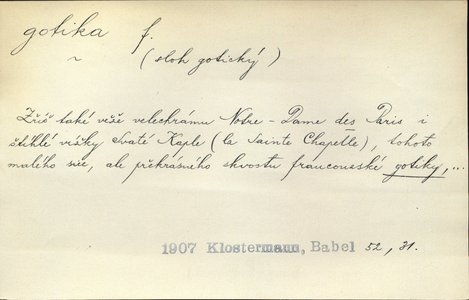 gotika f.
~ (sloh gotický)
Zříš také veže velechrámu Nôtre-Dame des Paris i
štíhlé vížky Svaté Kaple (la Sainte Chapelle), tohoto
malého sic, ale překrásného skvostu francouzské gotiky,...
1907 Klostermann, Babel 52, 31.